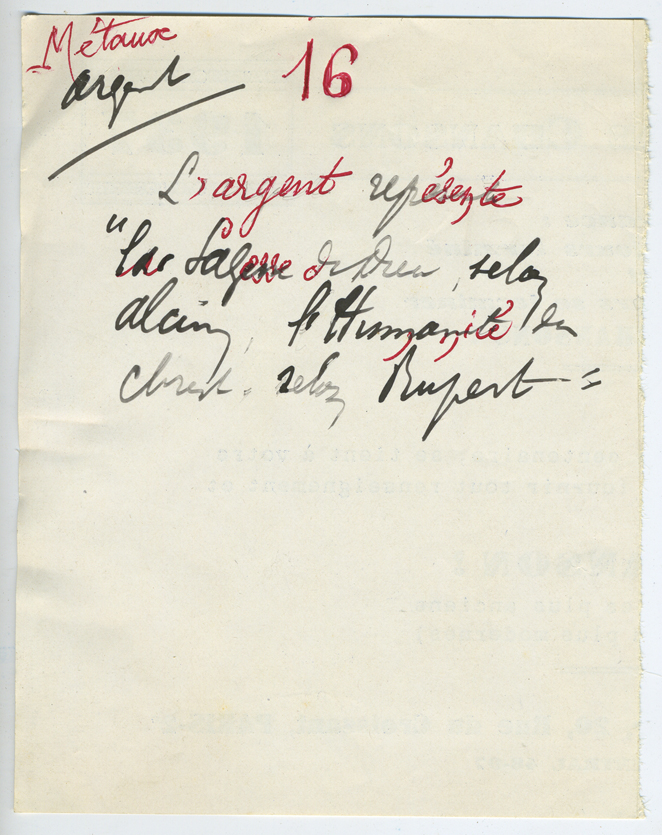 Métaux
16
argent
L'argent représente
"la Sagesse de Dieu, selon
alcuin, l'Humanité du
christ. selon Rupert =